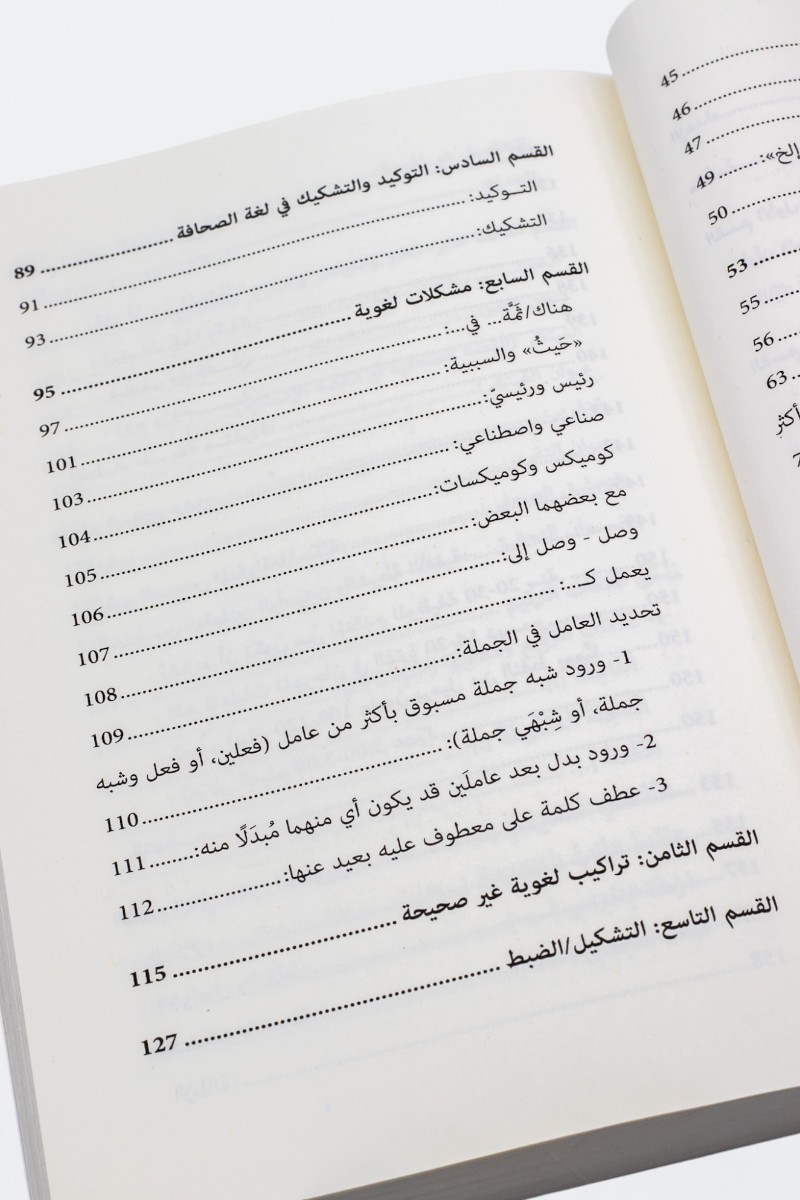 القسم السادس: التوكيد والتشكيك في لغة الصحافة ........................ 89
التــوكيد: ........................ 91
التشكيك: ........................ 93
القسم السابع: مشكلات لغوية ........................ 95
هناك/ثَمَّة... في...: ........................ 97
«حَيثُ» والسببية: ........................ 101
رئيس ورئيسيّ: ........................ 103
صناعي واصطناعي: ........................ 104
كوميكس وكوميكسات: ........................ 105
مع بعضهما البعض: ........................ 106
وصل - وصل إلى: ........................ 107
يعمل كـ...: ........................ 108
تحديد العامل في الجملة: ........................ 109
1- ورود شبه جملة مسبوق بأكثر من عامل (فعلين، أو فعل وشبه
جملة، أو شِبْهَي جملة): ........................ 110
2- ورود بدل بعد عاملَين قد يكون أي منهما مُبدَلًا منه: ........ 111
3- عطف كلمة على معطوف عليه بعيد عنها: ........................ 112
القسم الثامن: تراكيب لغوية غير صحيحة ........................ 115
القسم التاسع: التشكيل/الضبط ........................ 127
45
46
47
إلخ»: ...... 49
50
53
55
56
63